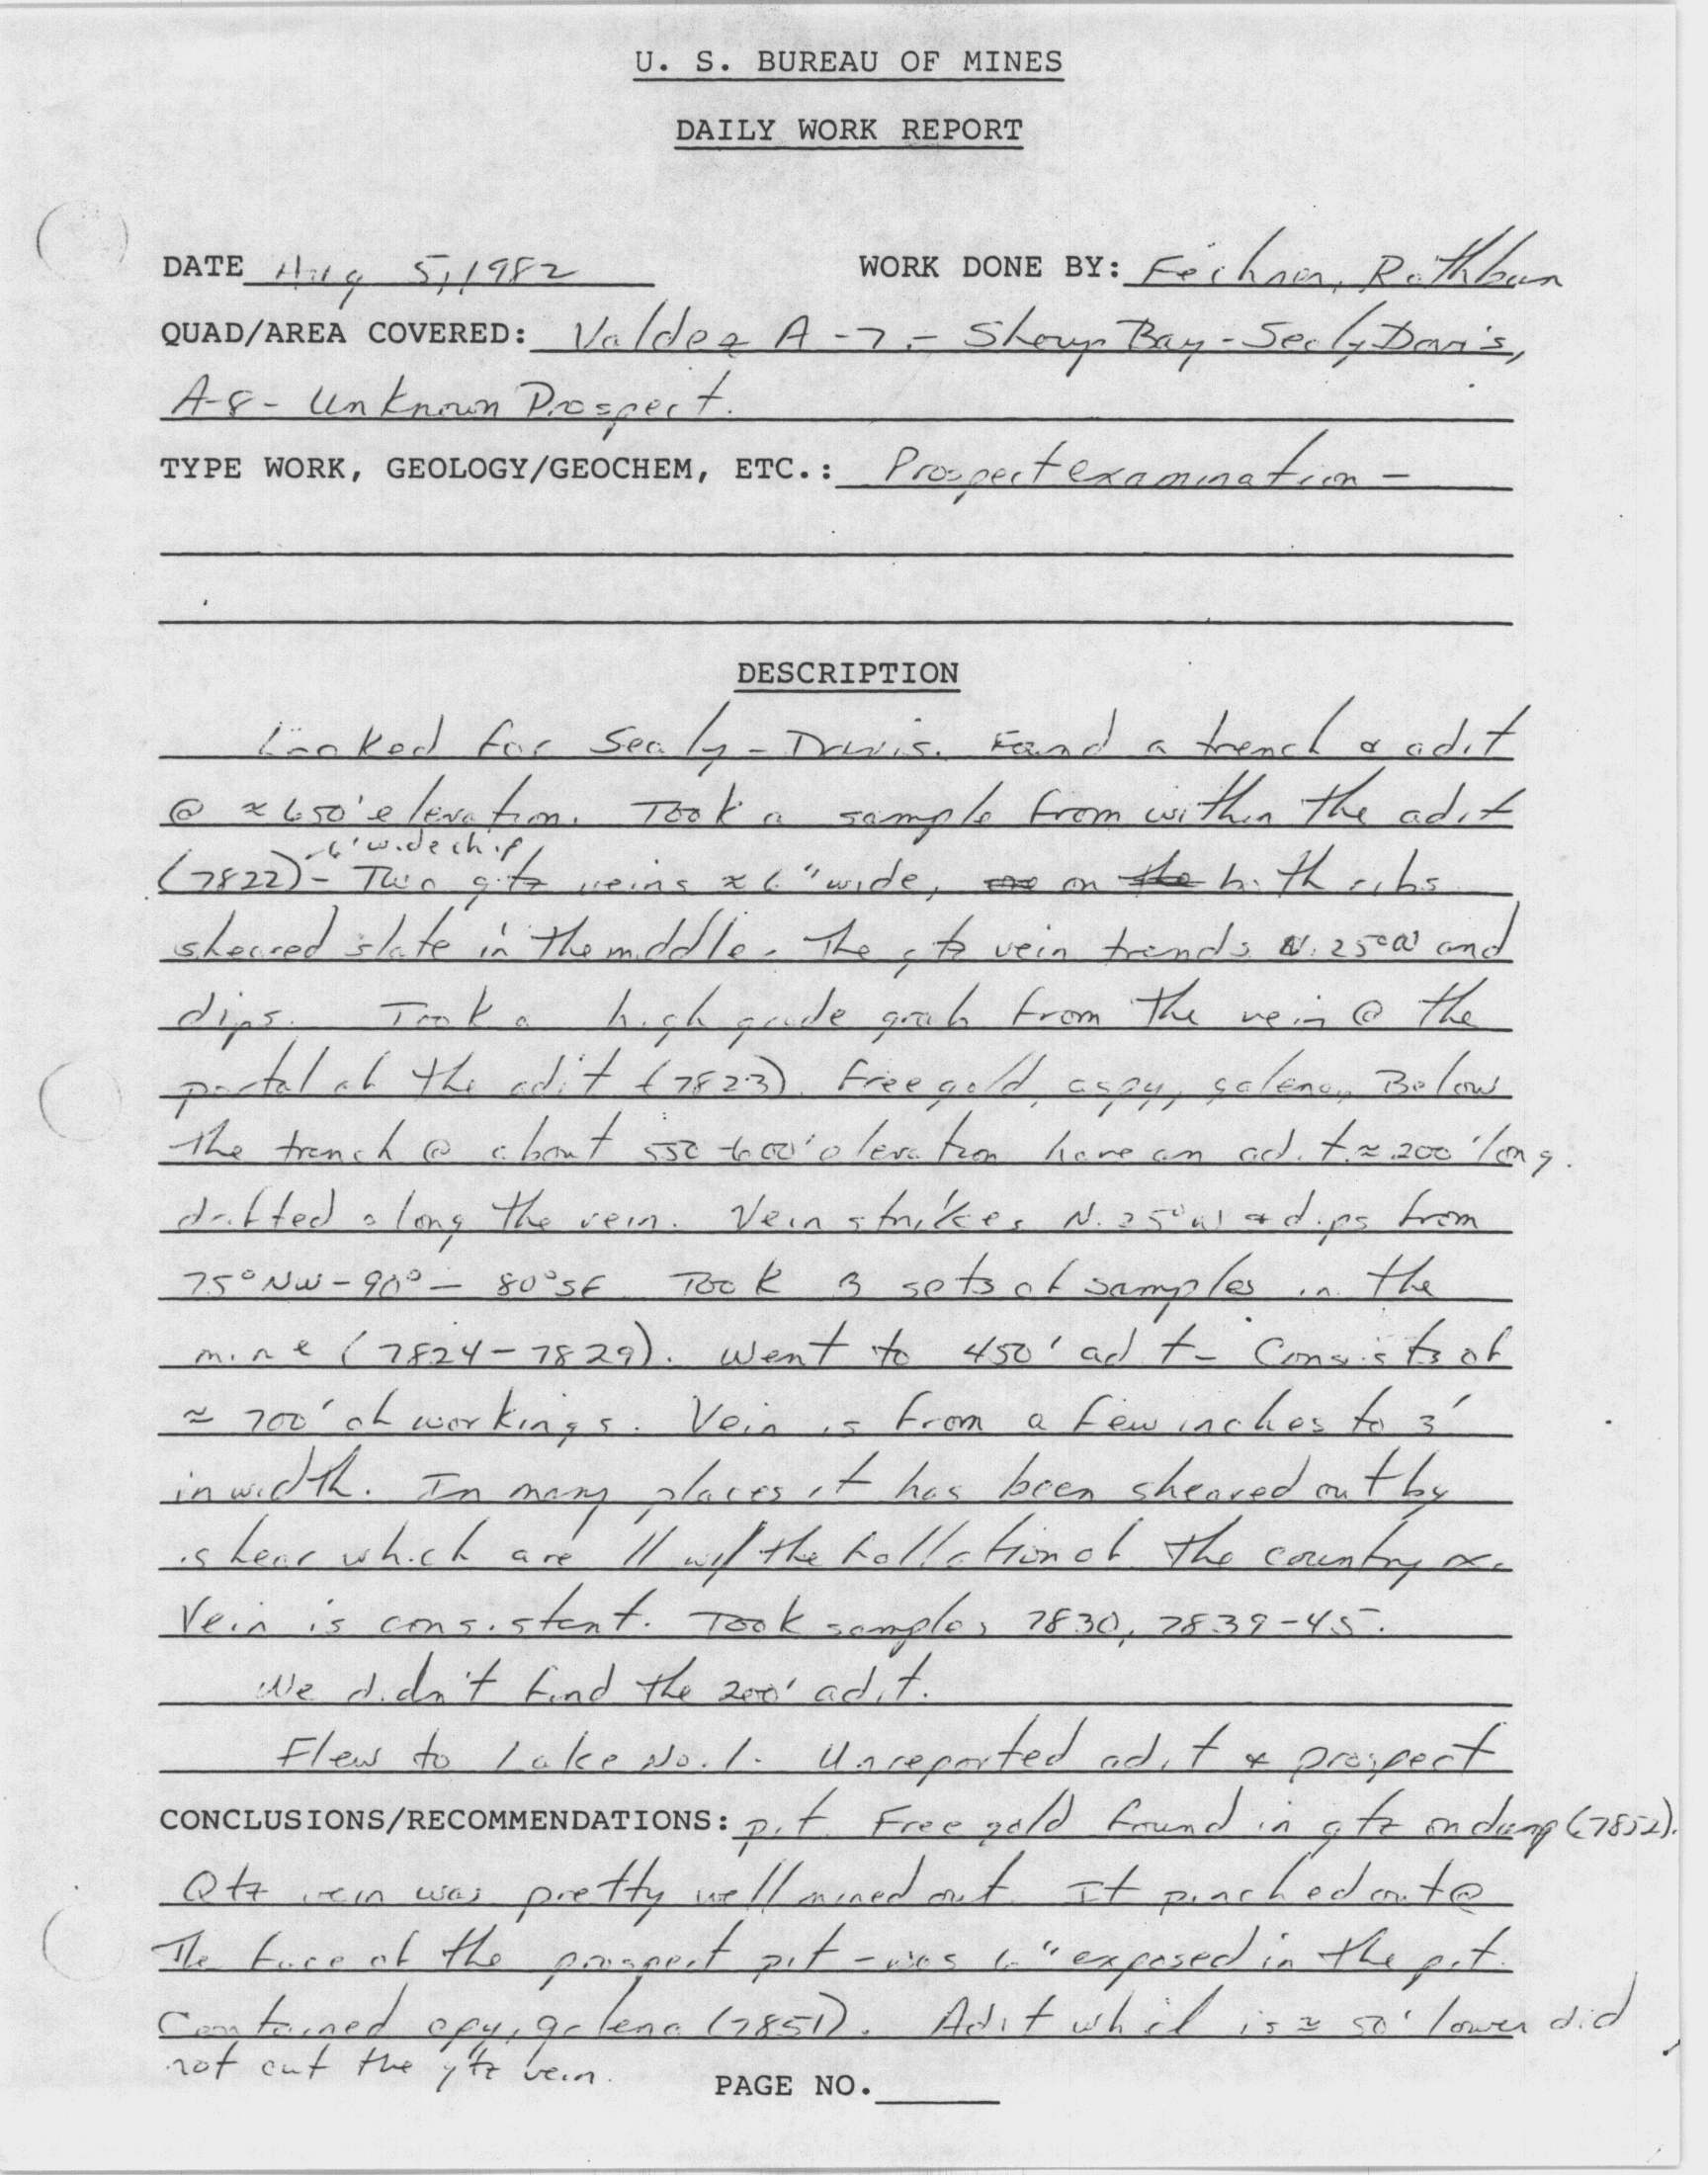 U. S. BUREAU OF MINES
DAILY WORK REPORT
DATE Aug 5, 1982 WORK DONE BY: Fechner, Rathbun
QUAD/AREA COVERED: Valdez A-7 - Shoup Bay - Sealy Davis,
A-8 - Unknown Prospect.
TYPE WORK, GEOLOGY/GEOCHEM, ETC.: Prospect examination -
DESCRIPTION
Looked for Sealy-Davis. Found a trench & adit
@ ≈ 650' elevation. Took a sample from within the adit
- 6' wide chip
(7822) - Two qtz veins ≈ 6" wide, on both ribs
sheared slate in the middle. The qtz vein trends N. 25° W and
dips. Took a high grade grab from the vein @ the
portal of the adit (7823). Free gold, aspy, galena, Below
the trench @ about 550-600' elevation have an adit ≈ 200' long.
drifted along the vein. Vein strikes N. 25° W & dips from
75° NW - 90° - 80° SE Took 3 sets of samples in the
mine (7824-7829). Went to 450' adit - Consists of
≈ 700' of workings. Vein is from a few inches to 3'
in width. In many places it has been sheared out by
shear which are // w/ the folliation of the country rx.
Vein is consistent. Took samples 7830, 7839-45.
We didn't find the 200' adit.
Flew to Lake No. 1. Unreported adit & prospect
CONCLUSIONS/RECOMMENDATIONS: pit. Free gold found in qtz on dump (7852).
Qtz vein was pretty well mined out. It pinched out @
The face of the prospect pit - was 6" exposed in the pit.
Contained galena (7851). Adit which is ≈ 50' lower did
not cut the qtz vein.
PAGE NO.